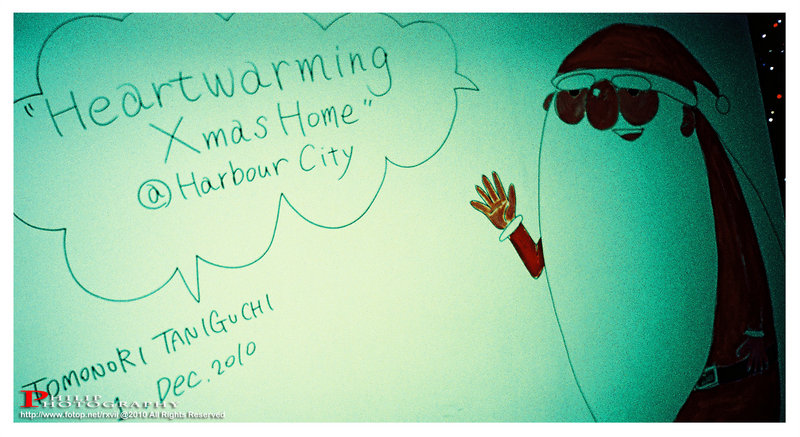 "Heartwarming
Xmas Home"
@Harbour City
TOMONORI TANIGUCHI
1 Dec. 2010
PHILIP
PHOTOGRAPHY
http://www.fotop.net/rxvij @2010 All Rights Reserved